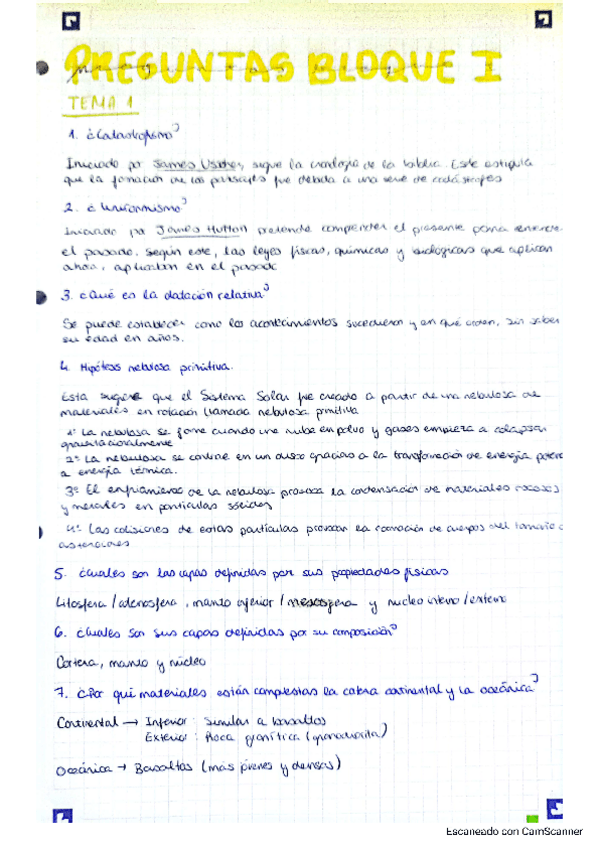 PREGUNTAS BLOQUE I
TEMA 1
1. ¿Catastrofismo?
Iniciado por James Ussher, sigue la cronología de la biblia. Este estipula
que la formación de los paisajes fue debida a una serie de catástrofes
2. ¿Uniformismo?
Iniciado por James Hutton pretende comprender el presente para entender
el pasado, según este, las leyes físicas, químicas y biológicas que aplican
ahora, aplicaban en el pasado
3. ¿Qué es la datación relativa?
Se puede establecer como los acontecimientos sucedieron y en qué orden, sin saber
su edad en años.
4. Hipótesis nebulosa primitiva.
Esta sugiere que el Sistema Solar fue creado a partir de una nebulosa de
materiales en rotación llamada nebulosa primitiva
1º La nebulosa se forma cuando una nube en polvo y gases empieza a colapsar
gravitacionalmente
2º La nebulosa se contrae en un disco gracias a la transformación de energía
a energía térmica.
3º El enfriamiento de la nebulosa provoca la condensación de materiales rocosos
y metales en partículas sólidas
4º Las colisiones de estas partículas provocan la formación de cuerpos del tamaño
asteroides
5. ¿Cuales son las capas definidas por sus propiedades físicas
Litosfera / astenosfera, manto inferior / mesosfera y núcleo interno / externo
6. ¿Cuales son sus capas definidas por su composición?
Corteza, manto y núcleo
7. ¿Por qué materiales están compuestas la corteza continental y la oceánica?
Continental → Inferior: Similar a basaltos
Exterior: Roca granítica (granodiorita)
Oceánica → Basaltos (más y densas)
Escaneado con CamScanner